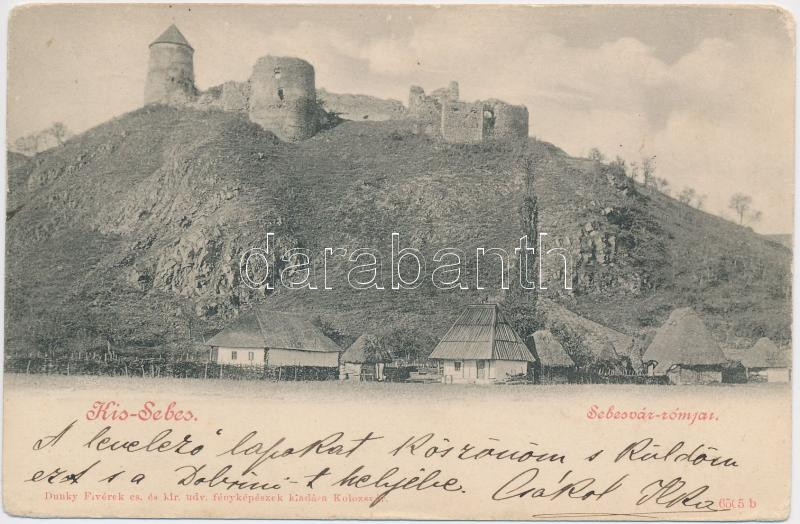 darabanth
Kis-Sebes.
Sebesvár-rómjai.
A levelező lapokat köszönöm s küldöm
ezt s a Dobrini-t helyébe. Csákol Ilka
Dunky Fivérek cs. és kir. udv. fényképészek kiadása Kolozsvár.
6505 b